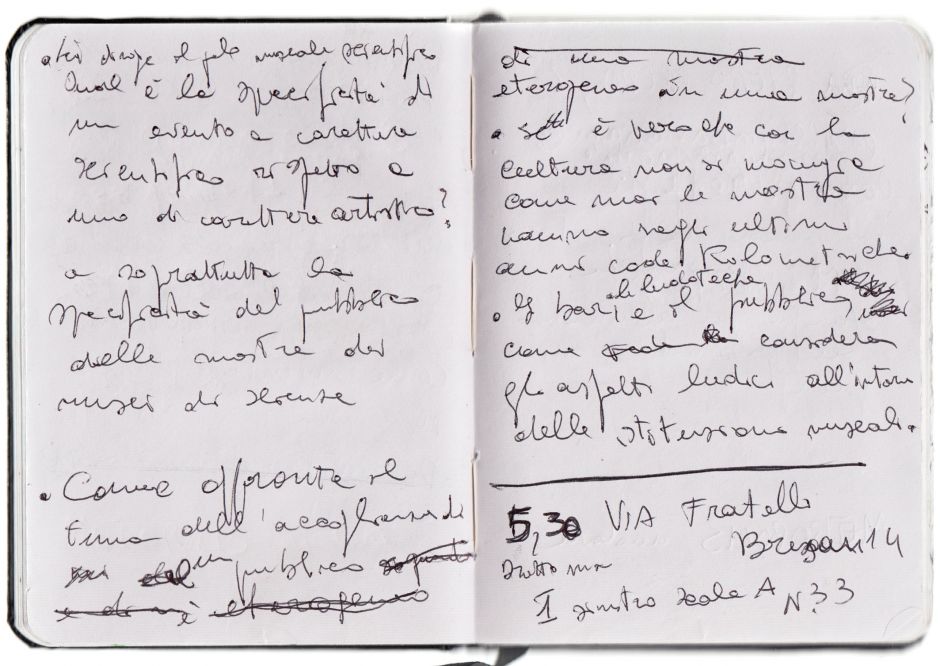 • Lei dirige il polo museale scientifico
Qual è la specificità di
un evento a carattere
scientifico rispetto a
uno di carattere artistico?
e soprattutto la
specificità del pubblico
delle mostre dei
musei di scienze
• Come affronta il
tema dell'accoglienza di
un pubblico
è eterogeneo
di una mostra
eterogeneo in una mostra?
• Se è vero che con la
cultura non si mangia
come mai le mostre
hanno negli ultimi
anni code kilometriche.
le ludoteche
• I bar, e il pubblico
come considera
gli aspetti ludici all'interno
delle istituzioni museali.
5,30 VIA Fratelli
14
1 sinistra scala A N° 33